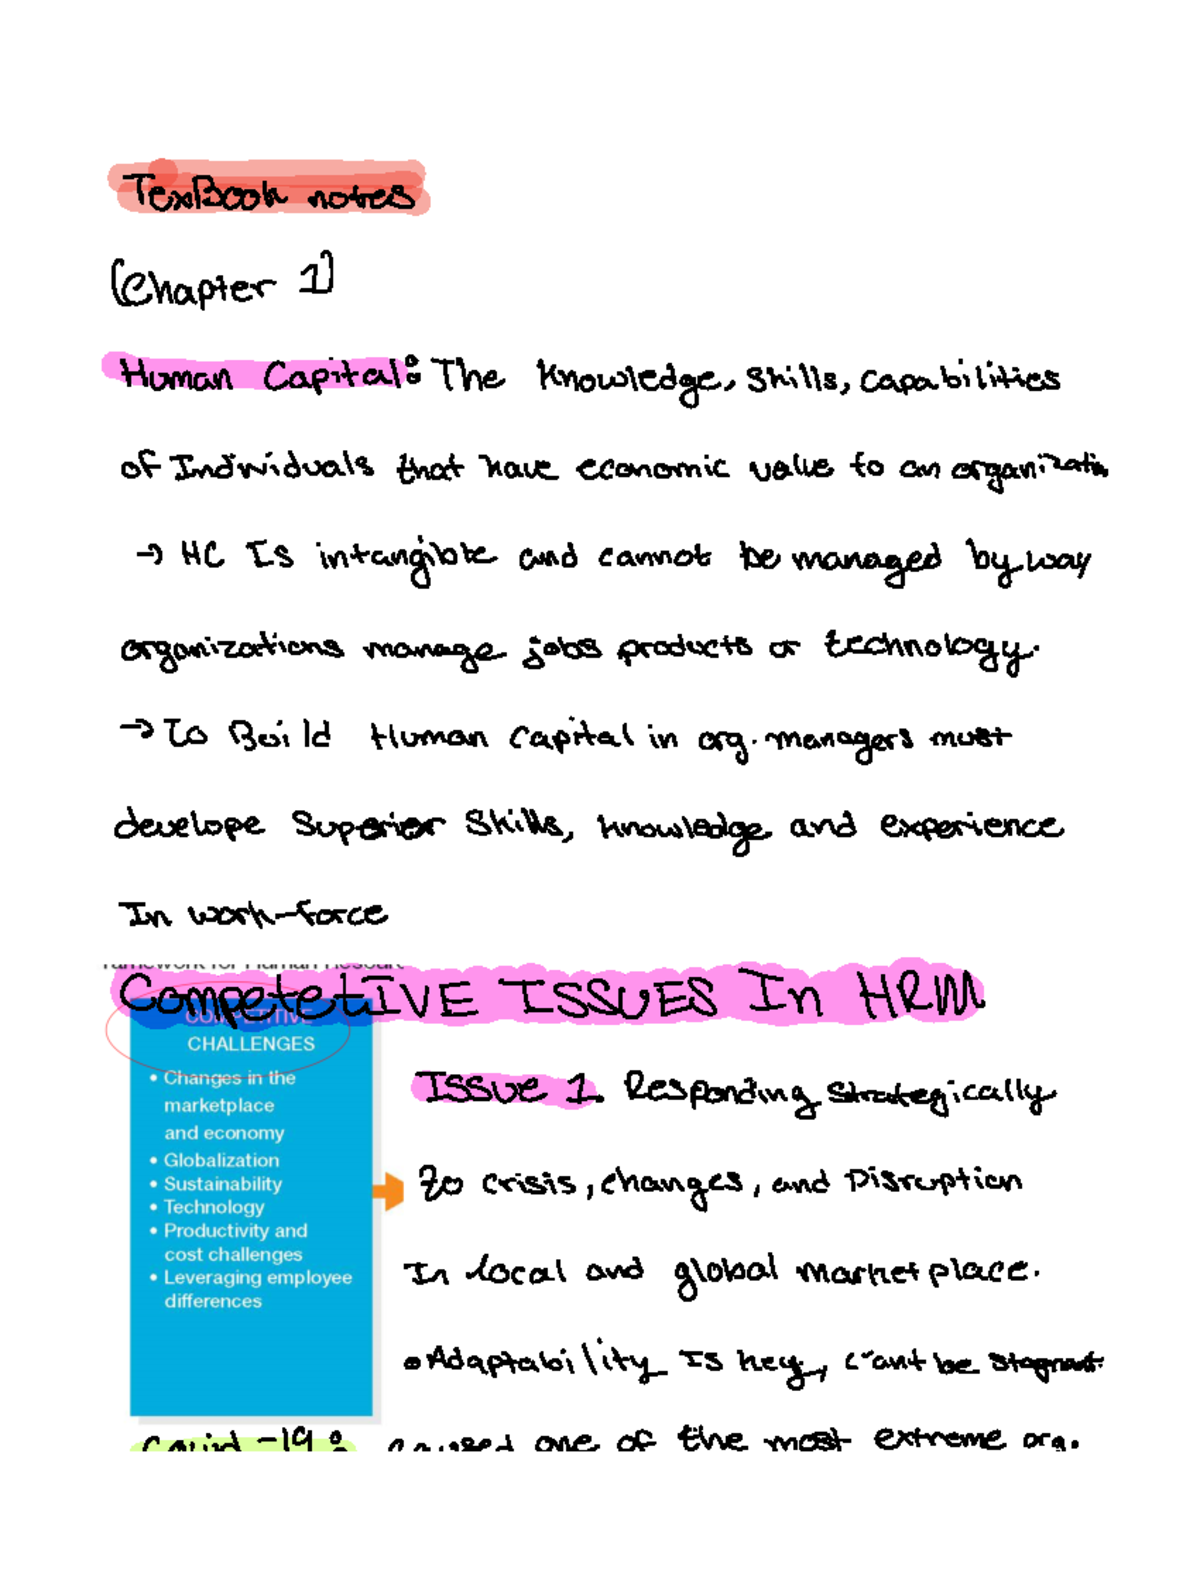 TexBook notes
(Chapter 1)
Human Capital: The Knowledge, skills, capabilities
of Individuals that have economic value to an organization
→ HC Is intangible and cannot be managed by way
organizations manage jobs products or technology.
→ To Build Human Capital in org. managers must
develope Superior Skills, knowledge and experience
In work-force
ramework for Human Resourc
CompetetIVE ISSUES In HRM
COMPETITIVE
CHALLENGES
• Changes in the
marketplace
and economy
• Globalization
• Sustainability
• Technology
• Productivity and
cost challenges
• Leveraging employee
differences
Issue 1. Responding strategically
to crisis, changes, and Disruption
In local and global marketplace.
• Adaptability Is key, can't be stagnant.
Covid -19: caused one of the most extreme org.